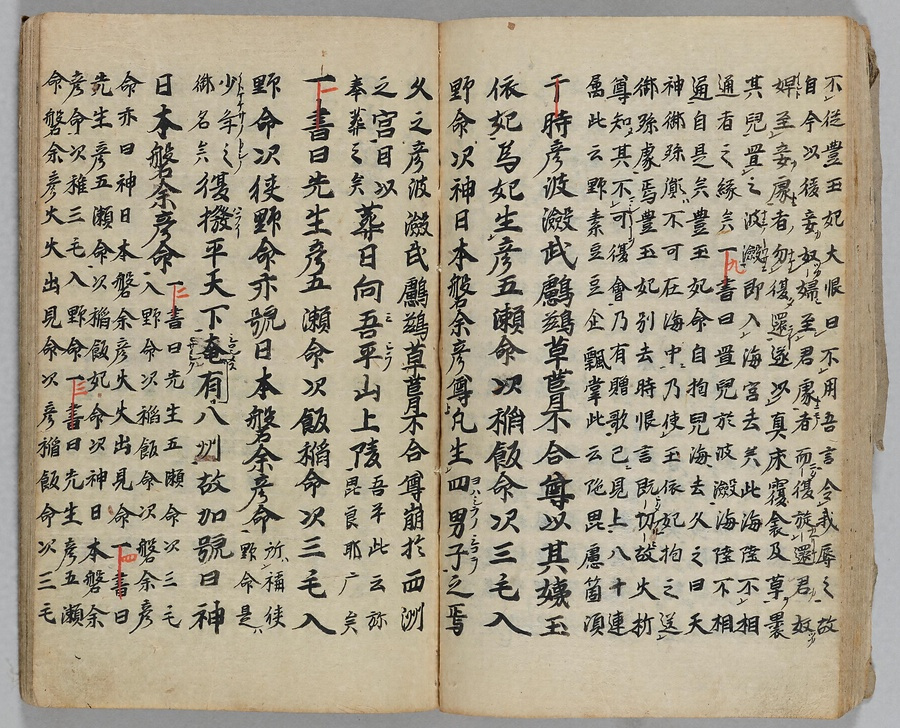 不従豊玉妃大恨曰不用吾言令我辱之故
自今以後妾奴婦至君處者而復旋還君奴
婢至妾處者勿復還遂以真床覆衾及草裹
其兒置之波瀲即入海宮去矣此海陸不相
通者之緣矣一書曰置兒於波瀲海陸不相
通自是矣豊玉妃命自抱兒海去久之曰天
神御孫慮不可在海中乃使玉依妃抱之送
御孫處焉豊玉妃別去時恨言既切故火折
尊知其不可復會乃有贈歌已見上八十連
属此云野素豆豆企飄掌此云陁毘盧箇須
于時彦波瀲武鸕鷀草葺不合尊以其姨玉
依妃為妃生彦五瀬命次稲飯命次三毛入
野命次神日本磐余彦尊凡生四男子之焉
久之彦波瀲武鸕鷀草葺不合尊崩於西洲
之宮因以葬日向吾平山上陵吾平此云弥
奉葬之矣毘良耶广矣
一書曰先生彦五瀬命次飯稲命次三毛入
野命次狭野命亦號曰本磐余彦命所稱狭野命是
少年之御名矣復撥平天下奄有八州故加號曰神
日本磐余彦命一書曰先生五瀬命次三毛
入野命次稲飯命次磐余彦
命亦曰神日本磐余彦火火出見命一書曰
先生彦五瀬命次稲飯妃命次神日本磐余
彦命次稚三毛入野命一書曰先生彦五瀬
命磐余彦火火出見命次彦稲飯命次三毛